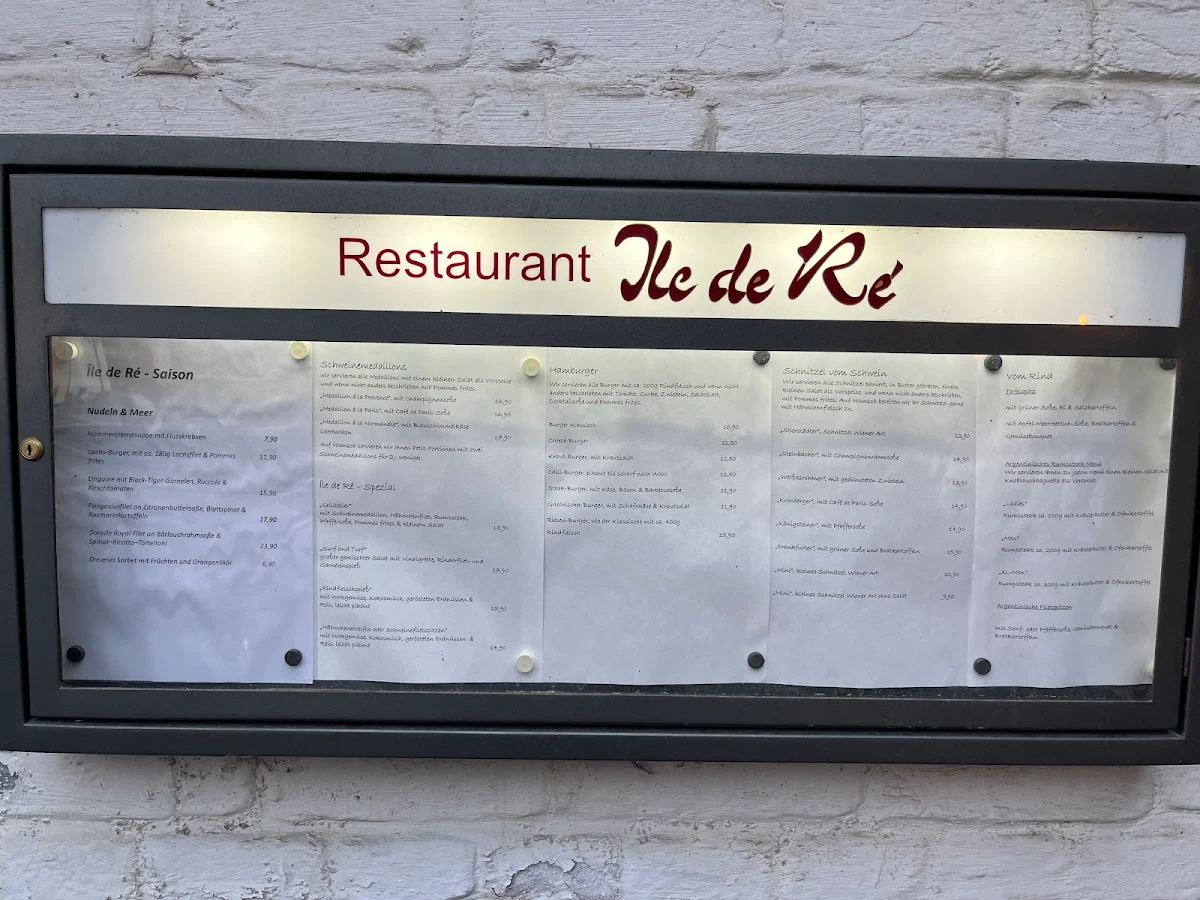 Restaurant Ile de Ré
Île de Ré - Saison
Nudeln & Meer
Hummercremesuppe mit Flusskrebsen 7,90
Lachs-Burger, mit ca. 180g Lachsfilet & Pommes
frites 11,90
Linguine mit Black-Tiger-Garnelen, Ruccola &
Kirschtomaten 15,90
Pangasiusfilet an Zitronenbuttersoße, Blattspinat &
Rosmarinkartoffeln 17,90
Dorade Royal Filet an Bärlauchrahmsoße &
Spinat-Ricotta-Tortelloni 23,90
Dreierlei Sorbet mit Früchten und Orangenlikör 6,90
Schweinemedaillons
Wir servieren die Medaillons mit einem kleinen Salat als Vorspeise
und wenn nicht anders beschrieben mit Pommes frites.
„Medaillon á la Provence", mit Champignonsoße 16,90
„Medaillon á la Paris", mit Café de Paris-Soße 16,90
„Medaillon á la Normandie", mit Blauschimmelkäse
überbacken 17,90
Auf Wunsch servieren wir Ihnen Petit-Portionen mit zwei
Schweinemedaillons für 2,- weniger.
Île de Ré - Spezial
„Grillteller"
mit Schweinemedaillon, Hähnchenfilet, Rumpsteak,
Pfeffersoße, Pommes frites & kleinem Salat 18,90
„Surf and Turf"
großer gemischter Salat mit Vinaigrette, Rinderfilet- und
Garnelenspieß 17,90
„Rindfleischspieß"
mit Wokgemüse, Kokosmilch, gerösteten Erdnüssen &
Reis, leicht pikant 15,90
„Hähnchenstreifen oder Schweinefiletspitzen"
mit Wokgemüse, Kokosmilch, gerösteten Erdnüssen &
Reis, leicht pikant 14,90
Hamburger
Wir servieren alle Burger mit ca. 200g Rindfleisch und wenn nicht
anders beschrieben mit Tomate, Gurke, Zwiebeln, Salatblatt,
Cocktailsoße und Pommes frites.
Burger klassisch 10,90
Cheese-Burger 11,50
Kraut-Burger, mit Krautsalat 11,50
Chili-Burger, pikant bis scharf nach Wahl 11,50
Steak-Burger, mit Käse, Bacon & Barbecuesoße 11,90
Griechischer Burger, mit Schafskäse & Krautsalat 11,90
Riesen-Burger, wie der Klassische mit ca. 400g
Rindfleisch 15,90
Schnitzel vom Schwein
Wir servieren alle Schnitzel paniert, in Butter gebraten, einem
kleinen Salat als Vorspeise, und wenn nicht anders beschrieben
mit Pommes frites. Auf Wunsch bereiten wir Ihr Schnitzel gerne
mit Hähnchenfleisch zu.
„Stierstädter", Schnitzel Wiener Art 12,90
„Steinbacher", mit Champignonrahmsoße 14,90
„Weißkirchener", mit gedünsteten Zwiebeln 13,90
„Kronberger", mit Café de Paris-Soße 14,90
„Königsteiner", mit Pfeffersoße 14,90
„Frankfurter", mit grüner Soße und Bratkartoffeln 15,90
„Mini", kleines Schnitzel Wiener Art 10,90
„Mini", kleines Schnitzel Wiener Art ohne Salat 9,90
Vom Rind
Tafelspitz
mit grüner Soße, Ei & Salzkartoffeln
mit Apfel-Meerrettich-Soße, Bratkartoffeln &
Gemüsebouquet
Argentinisches Rumpsteak-Menü
Wir servieren Ihnen zu jedem Menü einen kleinen Salat mit
Knoblauchbaguette als Vorspeise
„Ladies"
Rumpsteak ca. 150g mit Kräuterbutter & Ofenkartoffel
„Men"
Rumpsteak ca. 200g mit Kräuterbutter & Ofenkartoffel
„XL-Men"
Rumpsteak ca. 300g mit Kräuterbutter & Ofenkartoffel
Argentinische Filetspitzen
mit Senf- oder Pfeffersoße, Gemüsebouquet &
Bratkartoffeln